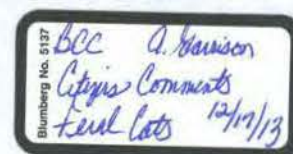 Blumberg No. 5137
BCC A. Garrison
Citizens Comments
Feral Cats 12/17/13